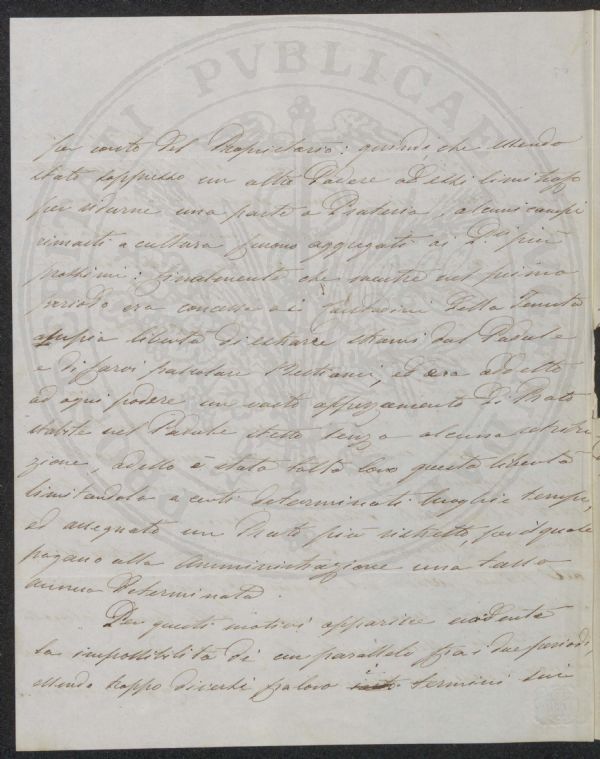 per conto del Proprietario: quindi, che essendo
stato soppresso un altro Podere ad essi limitrofo
per ridurne una parte a Prateria, alcuni campi
rimasti a cultura furono aggregati ai D.ⁱ più
prossimi: finalmente che mentre nel primo
periodo era concessa ai Contadini della Tenuta
ampia libertà di estrarre strami dal Padule
e di farvi pasturare i Bestiami, ed era addetto
ad ogni podere un vasto appezzamento di Prato
stabile nel Padule stesso senza alcuna retribu
zione, adesso è stata tolta loro questa libertà
limitandola a certi determinati luoghi e tempi,
ed assegnato un Prato più ristretto, per il quale
pagano alla Amministrazione una tassa
annua determinata.
Per questi motivi apparisce evidente
la impossibilità di un parallelo fra i due periodi,
essendo troppo diversi fra loro i termini dei